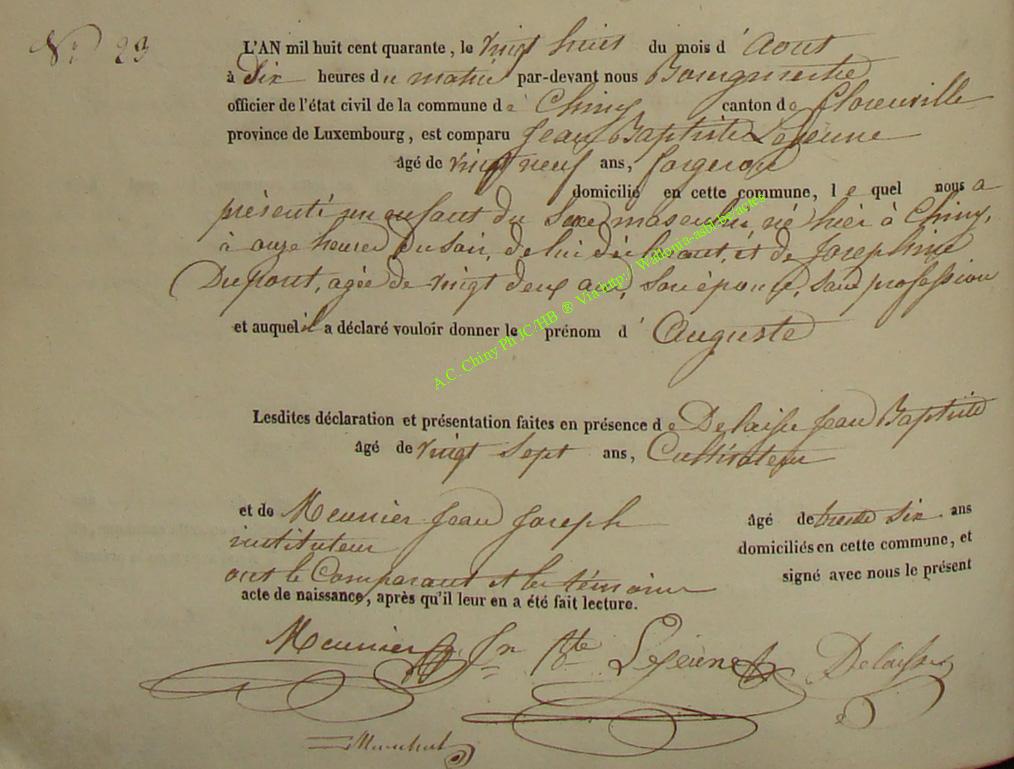 N° 23
L'AN mil huit cent quarante, le vingt huit du mois d' Aout
à Six heures du matin par-devant nous Bourgmestre
officier de l'état civil de la commune de Chiny canton de Florenville
province de Luxembourg, est comparu Jean Baptiste Lejeune
âgé de vingt neuf ans, forgeron
domicilié en cette commune, le quel nous a
présenté un enfant du Sexe masculin, né hier à Chiny,
à onze heures du soir, de lui déclarant, et de Josephine
Dupont, agée de vingt deux ans, son épouse, sans profession
et auquel il a déclaré vouloir donner le prénom d' Auguste
Lesdites déclaration et présentation faites en présence de Delaisse Jean Baptiste
âgé de vingt sept ans, Cultivateur
et de Meunier Jean Joseph âgé de trente six ans
instituteur domiciliés en cette commune, et
ont le Comparant et les témoins signé avec nous le présent
acte de naissance, après qu'il leur en a été fait lecture.
Meunier Jn Bte Lejeune Delaisse
A.C. Chiny Ph JC/HB ® Via http:/ Wallonia-asbl-be/actes